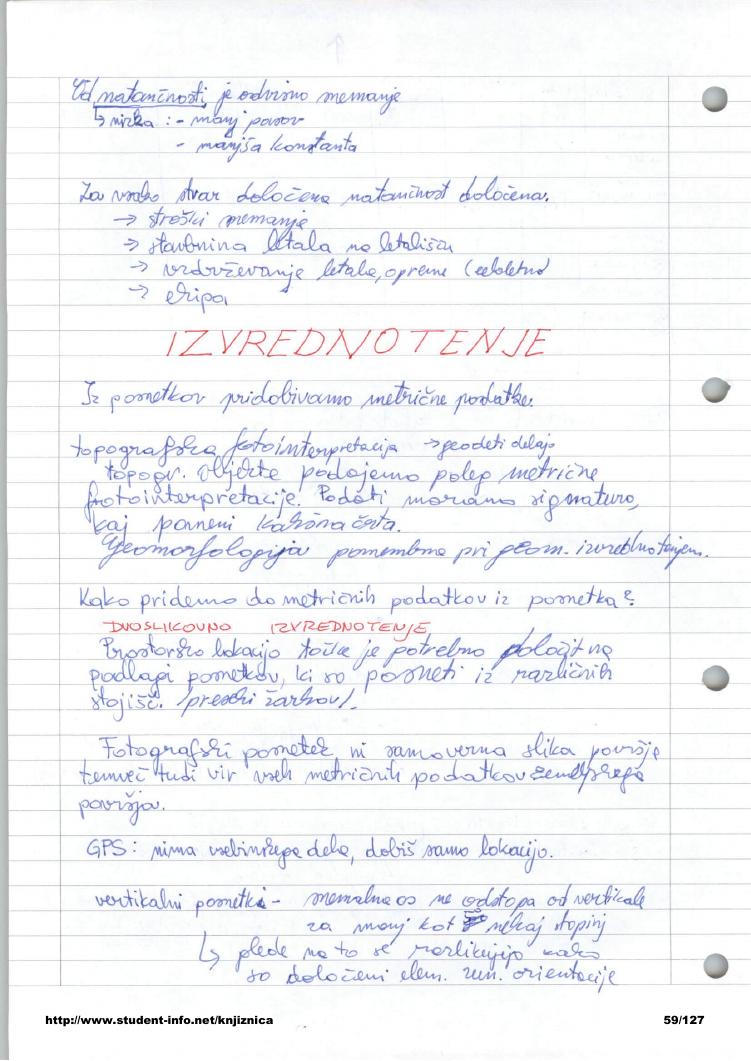 Od natančnosti je odvisno snemanje
↳ nizka : - manj pasov
- manjša konstanta
Za vsako stvar določena natančnost določena.
→ stroški snemanja
→ stavbnina letala na letališču
→ vzdrževanje letala, opreme (celoletno
→ ekipa
IZVREDNOTENJE
Iz posnetkov pridobivamo metrične podatke.
topografska fotointerpretacija → geodeti delajo
topogr. objekte podajemo poleg metrične
fotointerpretacije. Podati moramo signaturo,
kaj pomeni kakšna črta.
Geomorfologija pomembna pri geom. izvrednotenjem.
Kako pridemo do metričnih podatkov iz posnetka?
DVOSLIKOVNO IZVREDNOTENJE
Prostorsko lokacijo točke je potrebno določit na
podlagi posnetkov, ki so posneti iz različnih
stojišč. /preseki žarkov/.
Fotografski posnetek ni samo verna slika površja
temveč tudi vir vseh metričnih podatkov zemljskega
površja.
GPS: nima vsebinskega dela, dobiš samo lokacijo.
vertikalni posnetki - snemalna os ne odstopa od vertikale
za manj kot nekaj stopinj
↳ glede na to se razlikujejo kako
so določeni elem. zun. orientacije
http://www.student-info.net/knjiznica
59/127